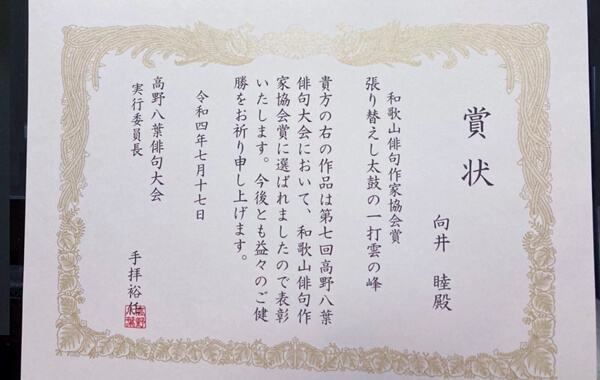 賞状
向井 睦殿
和歌山俳句作家協会賞
張り替えし太鼓の一打雲の峰
貴方の右の作品は第七回高野八葉
俳句大会において、和歌山俳句作
家協会賞に選ばれましたので表彰
いたします。今後とも益々のご健
勝をお祈り申し上げます。
令和四年七月十七日
高野八葉俳句大会
実行委員長
手拝裕任